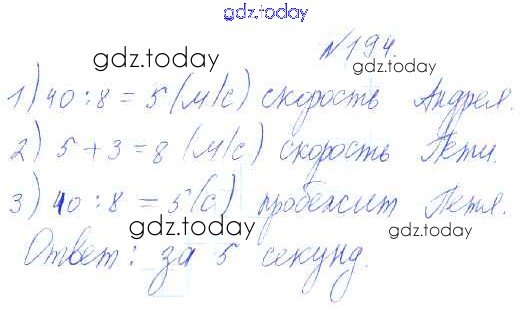 gdz.today
№194.
gdz.today gdz.today
1) 40 : 8 = 5 (м/с) скорость Андрея.
2) 5 + 3 = 8 (м/с) скорость Пети.
3) 40 : 8 = 5 (с) пробежит Петя.
gdz.today gdz.today
Ответ: за 5 секунд.